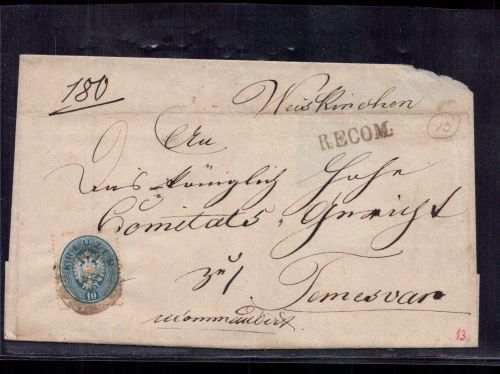 180
Weiskirchen
RECOM.
13
An
Das königlich hohe
Comitats-Gericht
zu
Temesvar
recommandirt
10
13